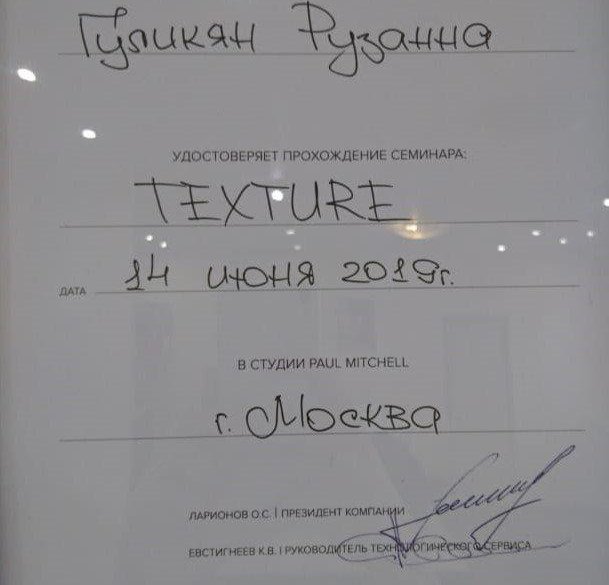 Гуликян Рузанна
УДОСТОВЕРЯЕТ ПРОХОЖДЕНИЕ СЕМИНАРА:
TEXTURE
ДАТА 14 июня 2019г.
В СТУДИИ PAUL MITCHELL
г. Москва
ЛАРИОНОВ О.С. | ПРЕЗИДЕНТ КОМПАНИИ
ЕВСТИГНЕЕВ К.В. | РУКОВОДИТЕЛЬ ТЕХНОЛОГИЧЕСКОГО СЕРВИСА